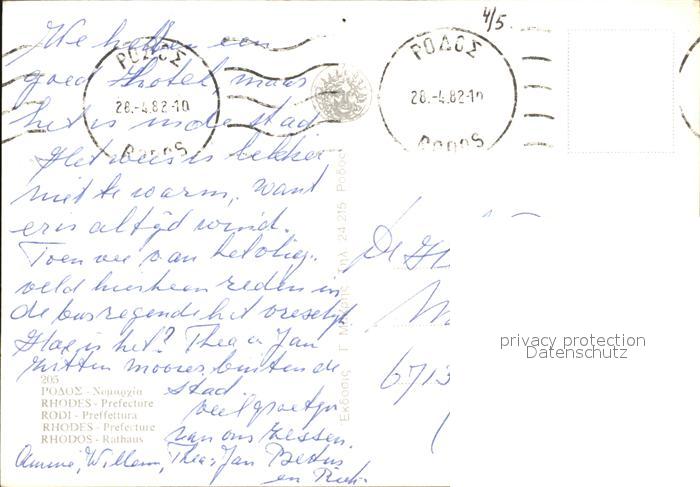 4/5.
ΡΟΔΟΣ
28.-4.82-10
ΡΟΔΟΣ
28.-4.82-10
We hebben een
goed Hotel, maar
het is in de stad
Het weer is lekker
niet te warm, want
er is altijd wind.
Toen we van het vlieg-
veld hierheen reden in
de bus regende het vreselijk
Hoe is het? Thea en Jan
zitten mooier, buiten de
stad.
veel groetjes
van ons zessen.
Willem, Thea, Jan
en
De
6713
205
ΡΟΔΟΣ - Νομαρχία
RHODES - Prefecture
RODI - Preffettura
RHODES - Prefecture
RHODOS - Rathaus
Εκδοσις Γ. Τηλ 24.215 Ρόδος
privacy protection
Datenschutz